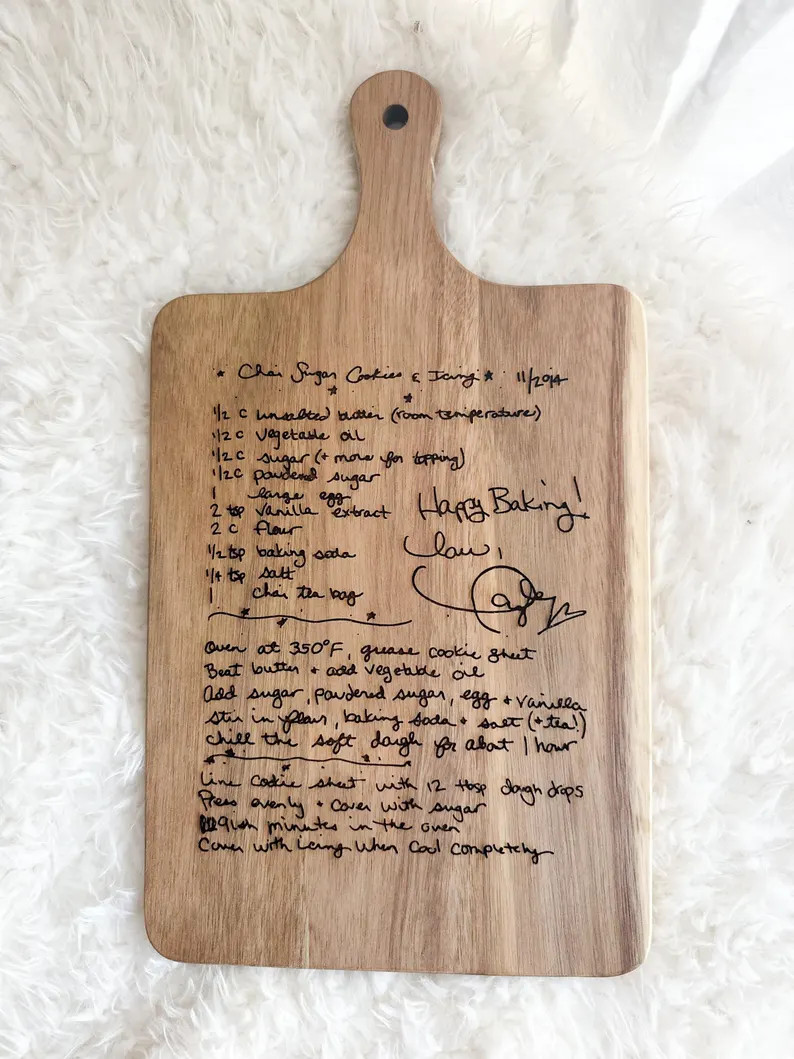 * Chai Sugar Cookies & Icing * 11/2014
1/2 c unsalted butter (room temperature)
1/2 c vegetable oil
1/2 c sugar (+ more for topping)
1/2 c powdered sugar
1 large egg
2 tsp vanilla extract
2 c flour
1/2 tsp baking soda
1/4 tsp salt
1 chai tea bag
Happy Baking!
Oven at 350°F, grease cookie sheet
Beat butter + add vegetable oil
Add sugar, powdered sugar, egg + vanilla
Stir in flour, baking soda + salt (+ tea!)
Chill the soft dough for about 1 hour
Line cookie sheet with 12 tbsp dough drops
Press evenly + cover with sugar
minutes in the oven
Cover with icing when cool completely